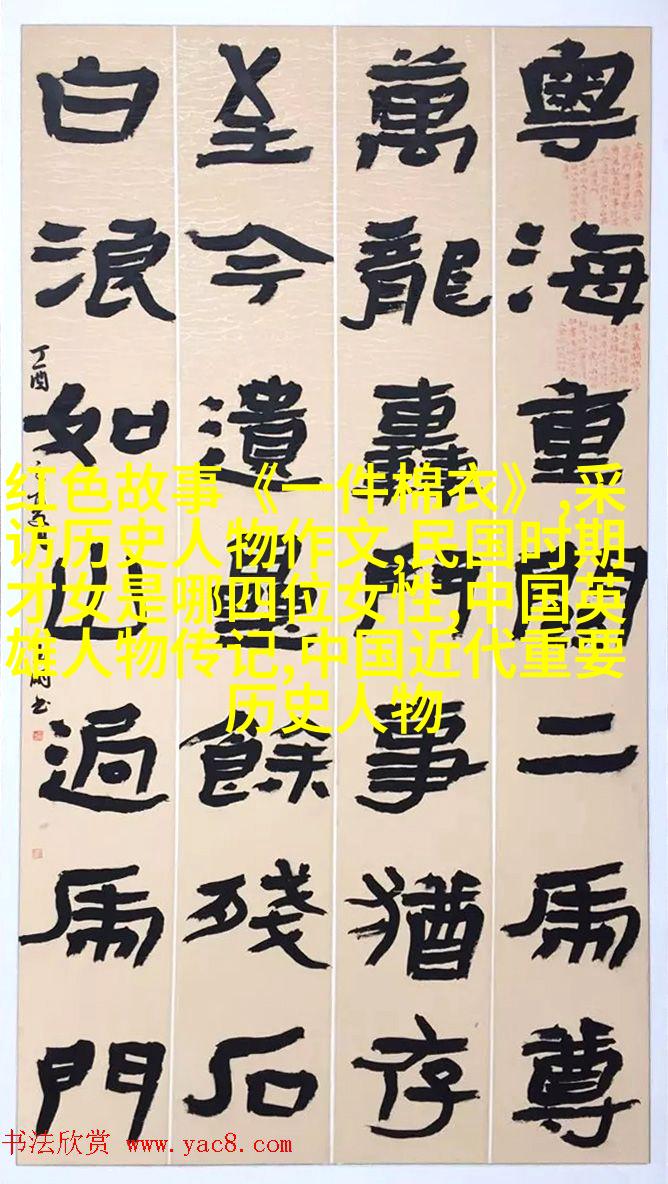 粤海重關二虎尊
萬龍轟鬥事猶存
至今遺壘餘殘石
白浪如山過虎門
丁酉
书
红色故事《一件棉衣》,采
访历史人物作文,民国时期
才女是哪四位女性,中国英
雄人物传记,中国近代重要
历史人物
书法欣赏 www.yac8.com